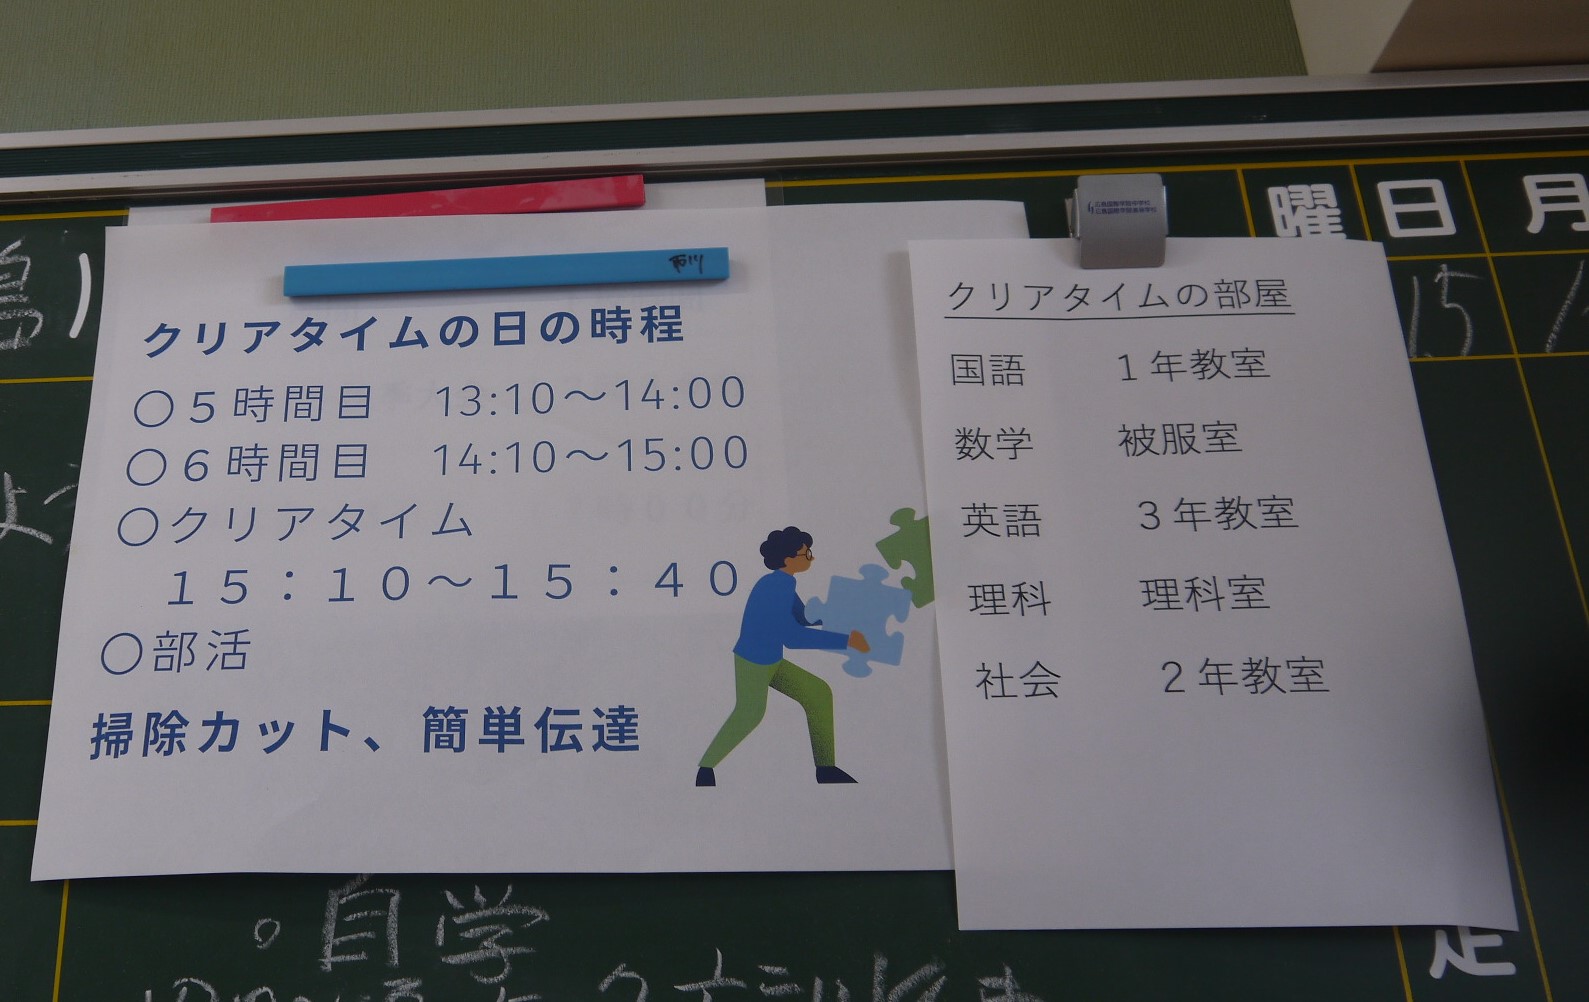 クリアタイムの日の時程
○５時間目　13:10～14:00
○６時間目　14:10～15:00
○クリアタイム
１５：１０～１５：４０
○部活
掃除カット、簡単伝達
クリアタイムの部屋
国語　１年教室
数学　被服室
英語　３年教室
理科　理科室
社会　２年教室
曜 日 月
15
。自学